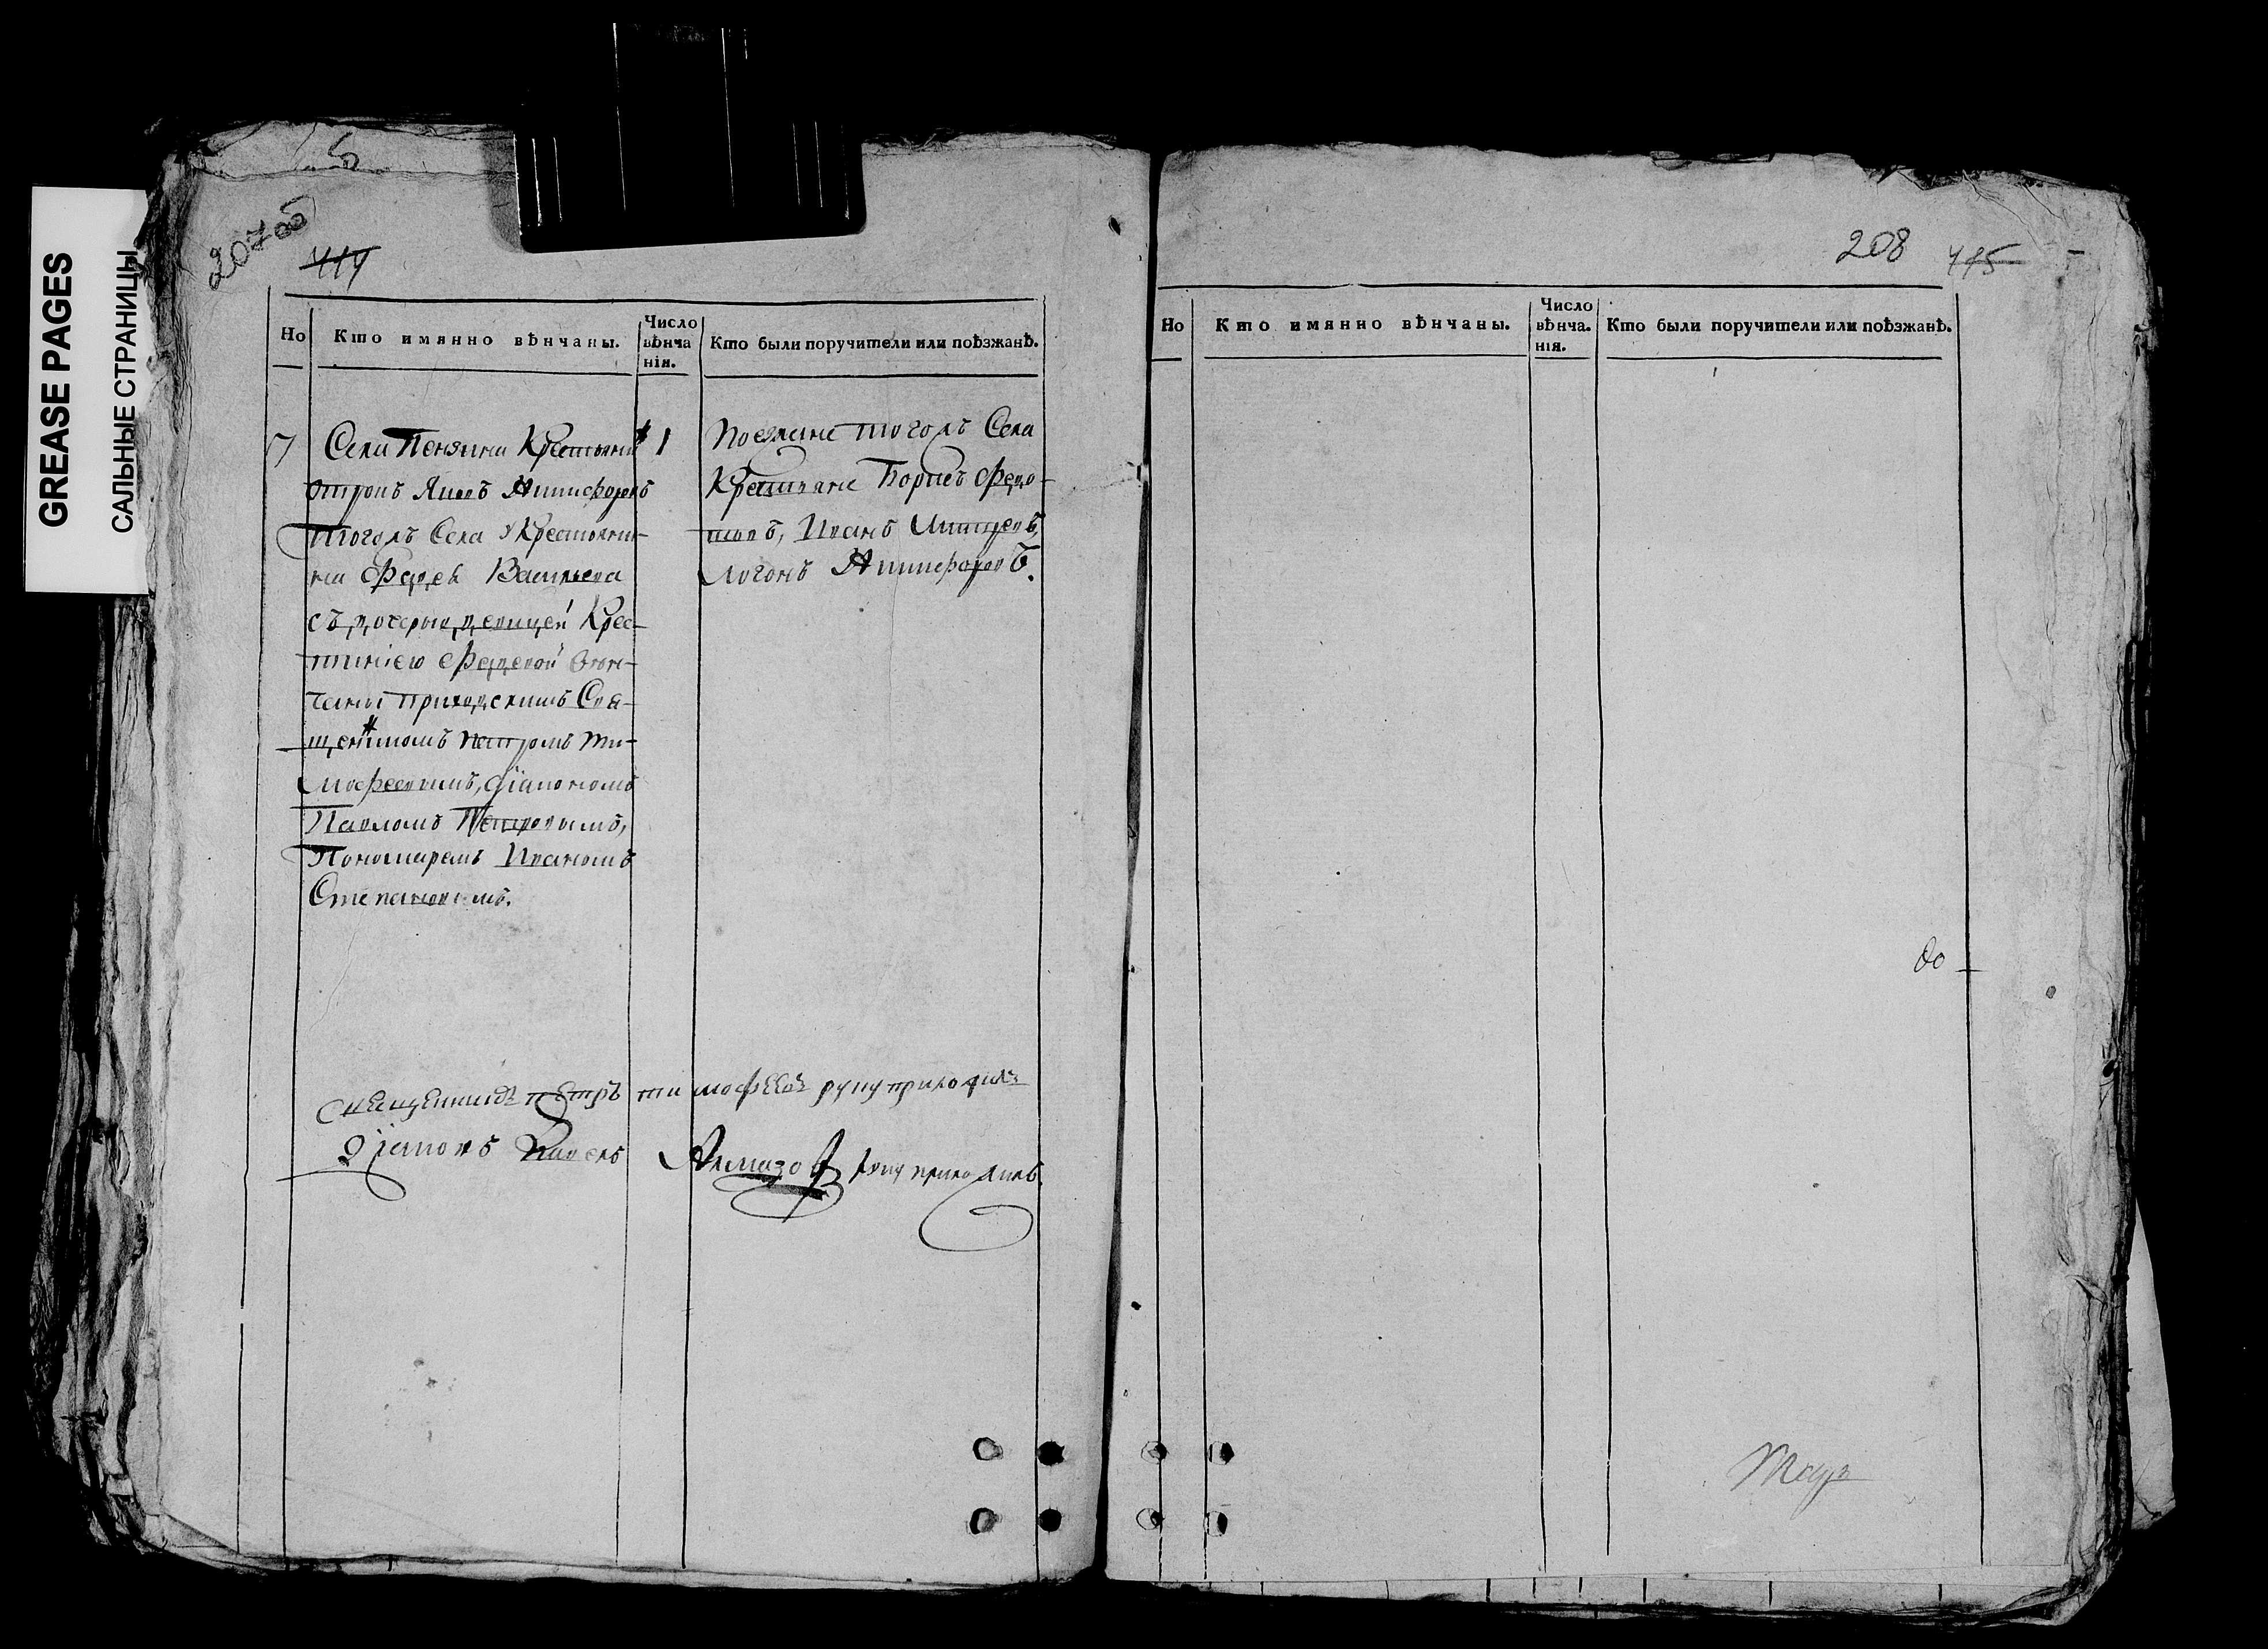 GREASE PAGES
САЛЬНЫЕ СТРАНИЦЫ
207об
414
Но
Кто имянно вѣнчаны.
Число вѣнча нія.
Кто были поручители или поѣзжанѣ.
7
Села Пензина Крестьянин
отрокъ Яковъ Никифоровъ
тогожъ Села Крестьяни-
на Фадея Васильева
съ дочерью девицей Крес-
тиніею Фадеевой
чаны приходскимъ Свя-
щенникомъ Петромъ Ти-
мофеевымъ, діакономъ
Павломъ Петровымъ,
Пономаремъ Иваномъ
Степановымъ.
1
Поезжане тогожъ Села
Крестьяне Борисъ Федо-
товъ, Иванъ
Логонъ Никифоровъ.
Священникъ Петръ Тимофеевъ руку приложилъ
Діаконъ Павелъ Алмазов руку приложилъ.
208
415
Но
Кто имянно вѣнчаны.
Число вѣнча. нія.
Кто были поручители или поѣзжанѣ.
до